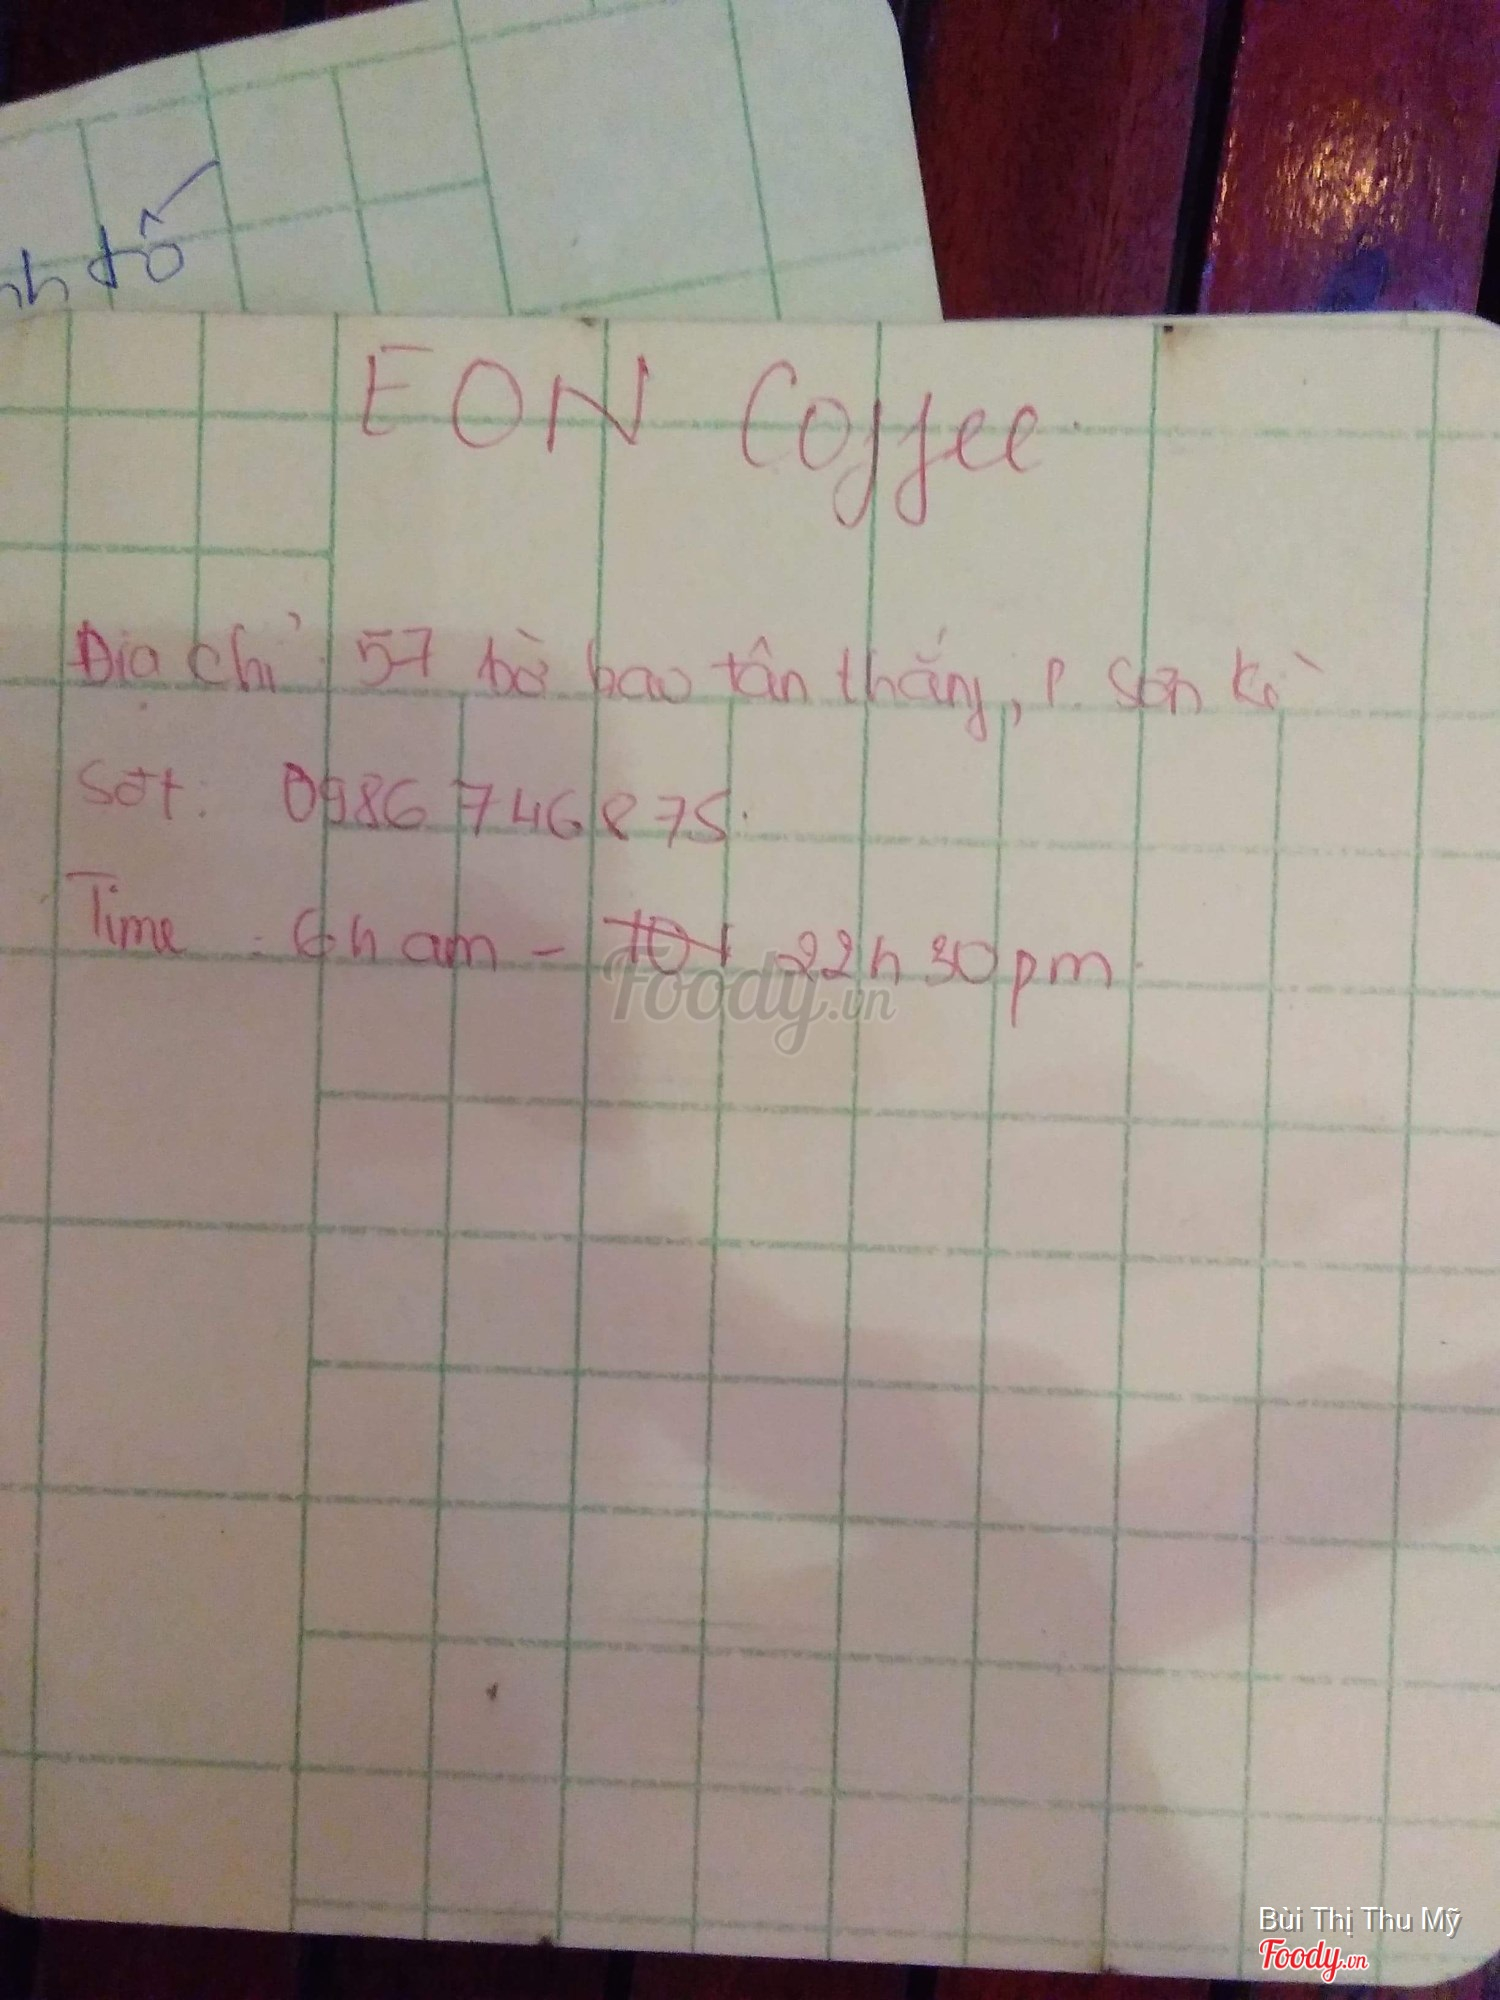 nh tố
EON Coffee.
Địa chỉ: 57 bờ bao tân thắng, P. Sơn Kì
Sđt: 0986 746 875.
Time: 6h am - 22h30pm.
Foody.vn
Bùi Thị Thu Mỹ
Foody.vn